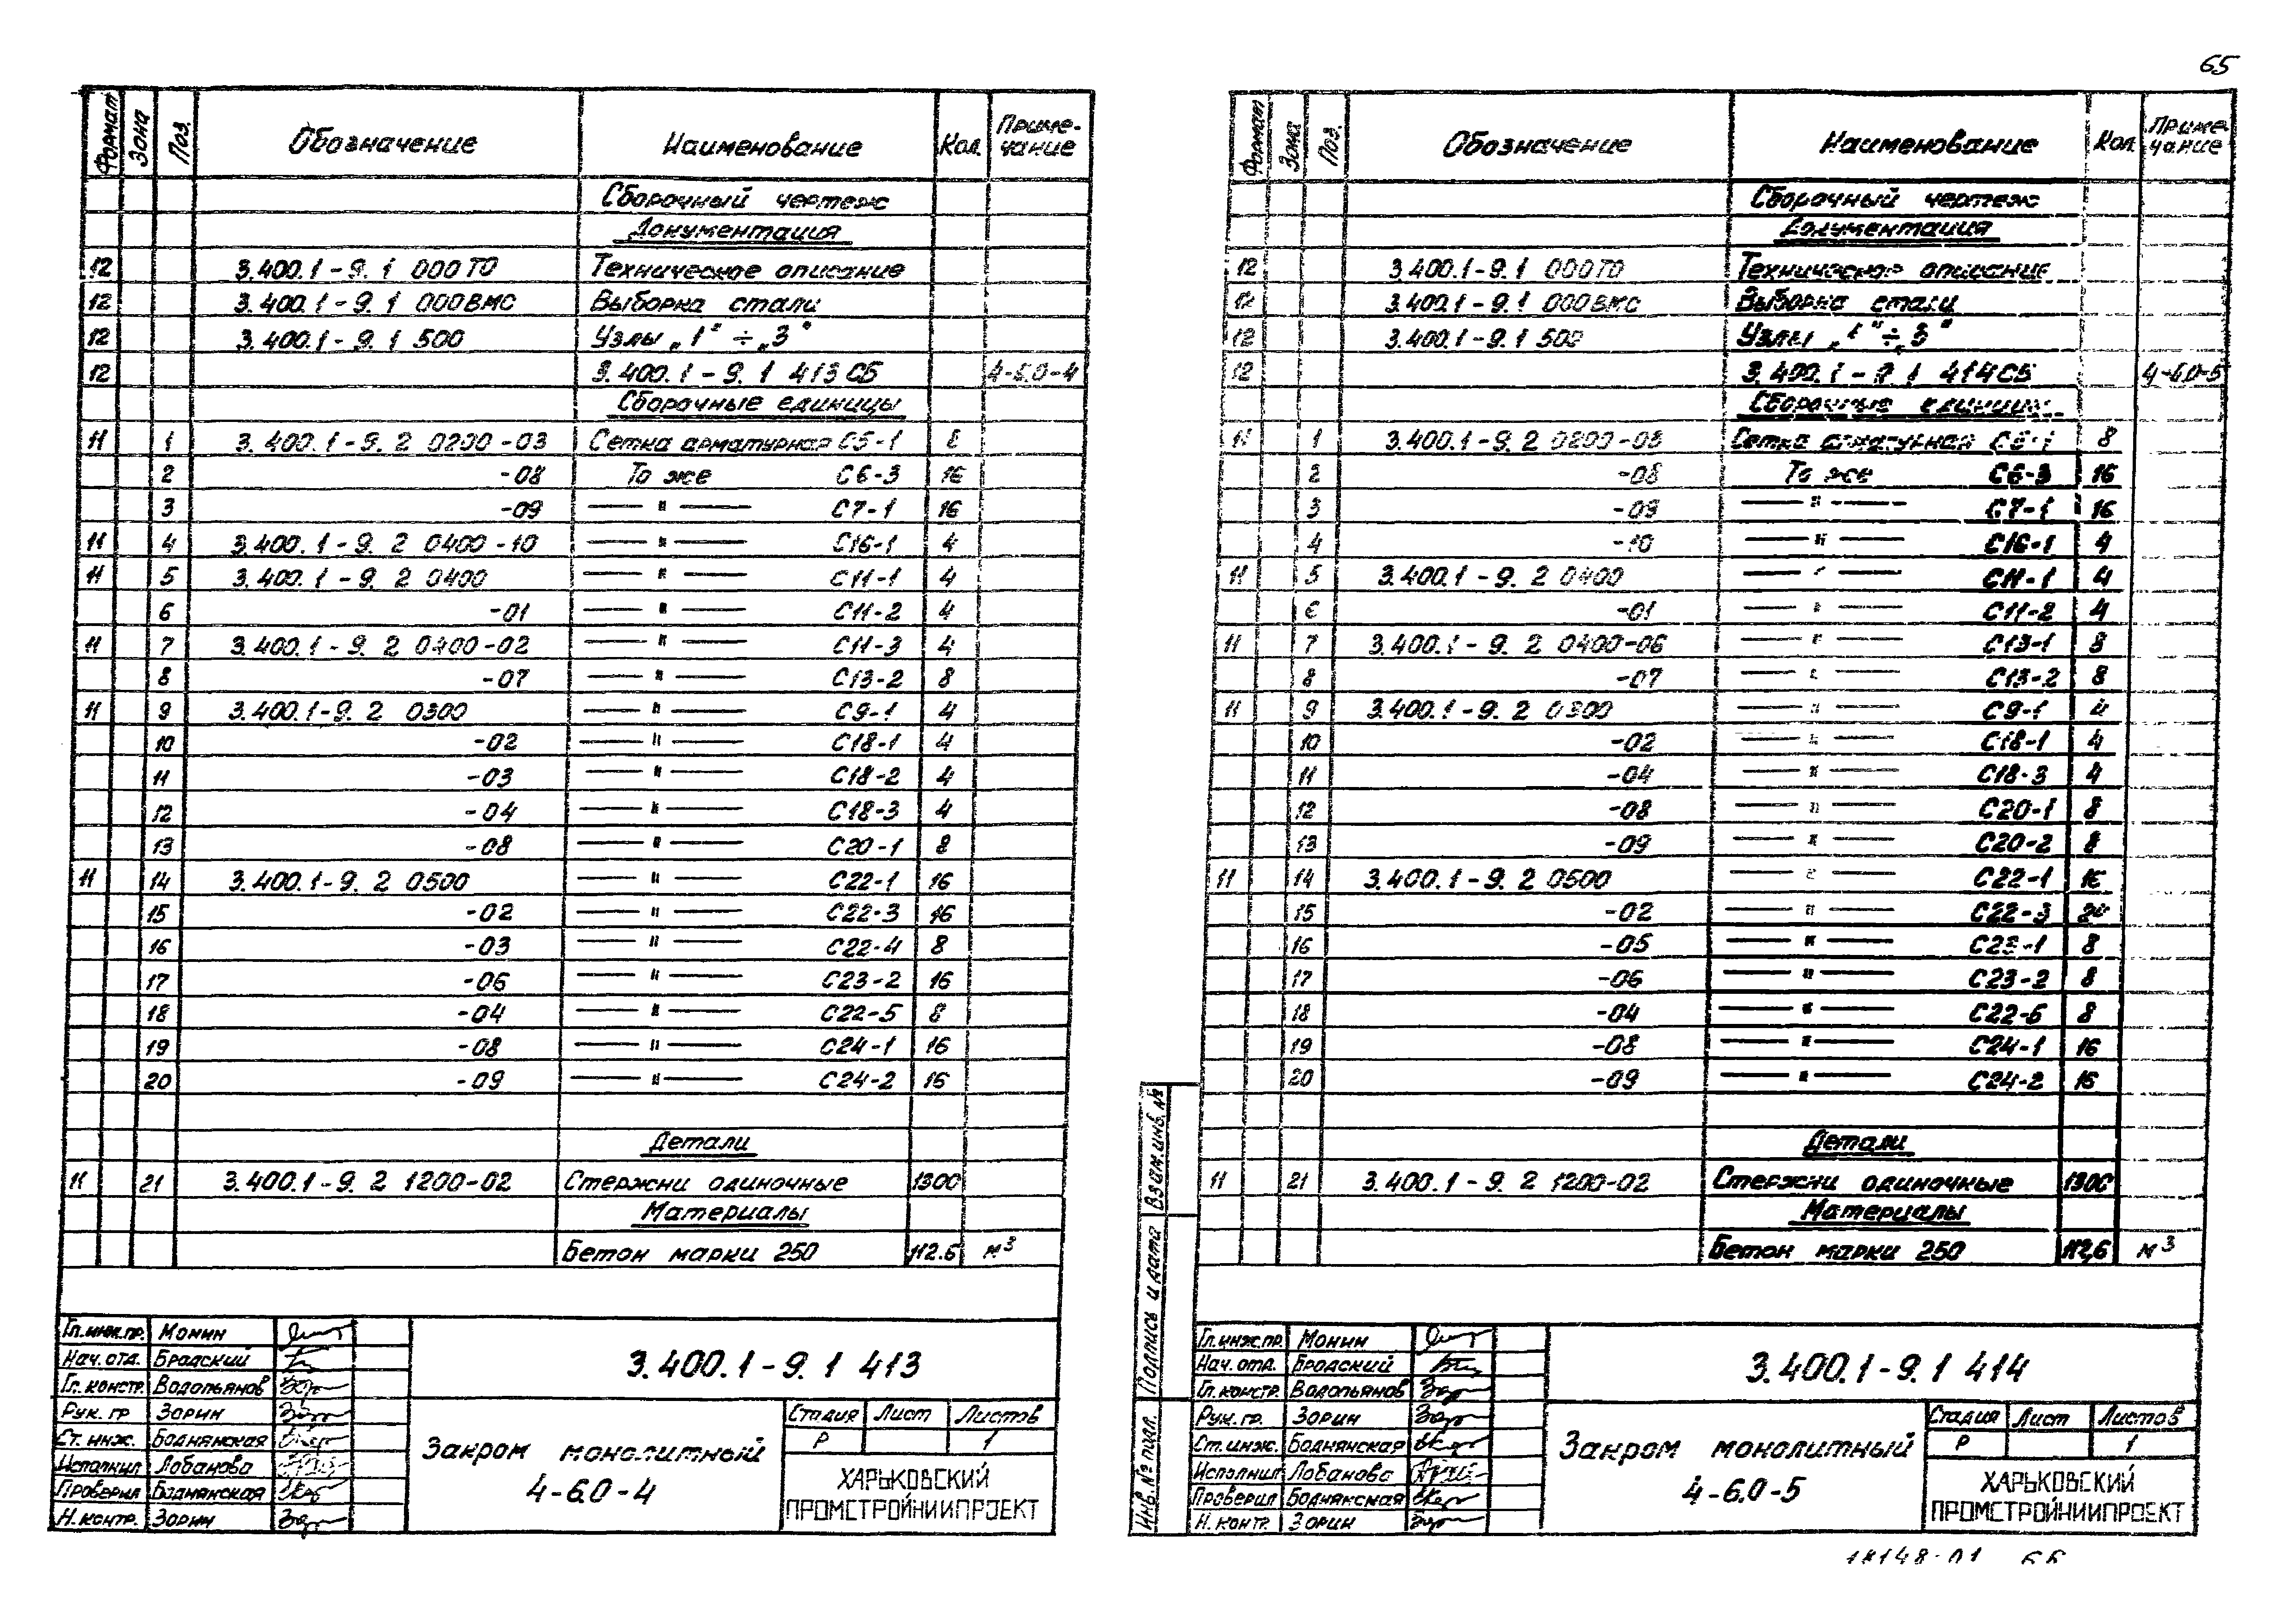 65
Формат Зона Поз. Обозначение Наименование Кол. Приме-чание
Сборочный чертеж
Документация
12 3.400.1-9.1 000ТО Техническое описание
12 3.400.1-9.1 000ВМС Выборка стали
12 3.400.1-9.1 500 Узлы „1" ÷ „3"
12 3.400.1-9.1 413СБ 4-6.0-4
Сборочные единицы
11 1 3.400.1-9.2 0200-03 Сетка арматурная С5-1 8
2 -08 То же С6-3 16
3 -09 —"— С7-1 16
11 4 3.400.1-9.2 0400-10 —"— С16-1 4
11 5 3.400.1-9.2 0400 —"— С11-1 4
6 -01 —"— С11-2 4
11 7 3.400.1-9.2 0400-02 —"— С11-3 4
8 -07 —"— С13-2 8
11 9 3.400.1-9.2 0300 —"— С9-1 4
10 -02 —"— С18-1 4
11 -03 —"— С18-2 4
12 -04 —"— С18-3 4
13 -08 —"— С20-1 8
11 14 3.400.1-9.2 0500 —"— С22-1 16
15 -02 —"— С22-3 16
16 -03 —"— С22-4 8
17 -06 —"— С23-2 16
18 -04 —"— С22-5 8
19 -08 —"— С24-1 16
20 -09 —"— С24-2 16
Детали
11 21 3.400.1-9.2 1200-02 Стержни одиночные 1300
Материалы
Бетон марки 250 112.6 м³
Гл.инж.пр. Монин
Нач. отд. Бродский
Гл. констр. Водопьянов
Рук. гр Зорин
Ст. инж. Боднянская
Исполнил Лобанова
Проверил Боднянская
Н. контр. Зорин
3.400.1-9.1 413
Закром монолитный
4-6.0-4
Стадия Лист Листов
Р 1
ХАРЬКОВСКИЙ
ПРОМСТРОЙНИИПРОЕКТ
Формат Зона Поз. Обозначение Наименование Кол. Приме-чание
Сборочный чертеж
Документация
12 3.400.1-9.1 000ТО Техническое описание
12 3.400.1-9.1 000ВМС Выборка стали
12 3.400.1-9.1 500 Узлы „1" ÷ „3"
12 3.400.1-9.1 414СБ 4-6.0-5
Сборочные единицы
11 1 3.400.1-9.2 0200-03 Сетка арматурная 8
2 -08 То же С6-3 16
3 -09 —"— С7-1 16
4 -10 —"— С16-1 4
11 5 3.400.1-9.2 0400 —"— С11-1 4
6 -01 —"— С11-2 4
11 7 3.400.1-9.2 0400-06 —"— С13-1 8
8 -07 —"— С13-2 8
11 9 3.400.1-9.2 0300 —"— С9-1 4
10 -02 —"— С18-1 4
11 -04 —"— С18-3 4
12 -08 —"— С20-1 8
13 -09 —"— С20-2 8
11 14 3.400.1-9.2 0500 —"— С22-1 16
15 -02 —"— С22-3
16 -05 —"— С23-1 8
17 -06 —"— С23-2 8
18 -04 —"— С22-5 8
19 -08 —"— С24-1 16
20 -09 —"— С24-2 16
Детали
11 21 3.400.1-9.2 1200-02 Стержни одиночные 1300
Материалы
Бетон марки 250 112,6 м³
Инв. № подл. Подпись и дата Взам.инв. №
Гл.инж.пр. Монин
Нач. отд. Бродский
Гл. констр. Водопьянов
Рук. гр. Зорин
Ст. инж. Боднянская
Исполнил Лобанова
Проверил Боднянская
Н. контр. Зорин
3.400.1-9.1 414
Закром монолитный
4-6.0-5
Стадия Лист Листов
Р 1
ХАРЬКОВСКИЙ
ПРОМСТРОЙНИИПРОЕКТ
18148-01 66